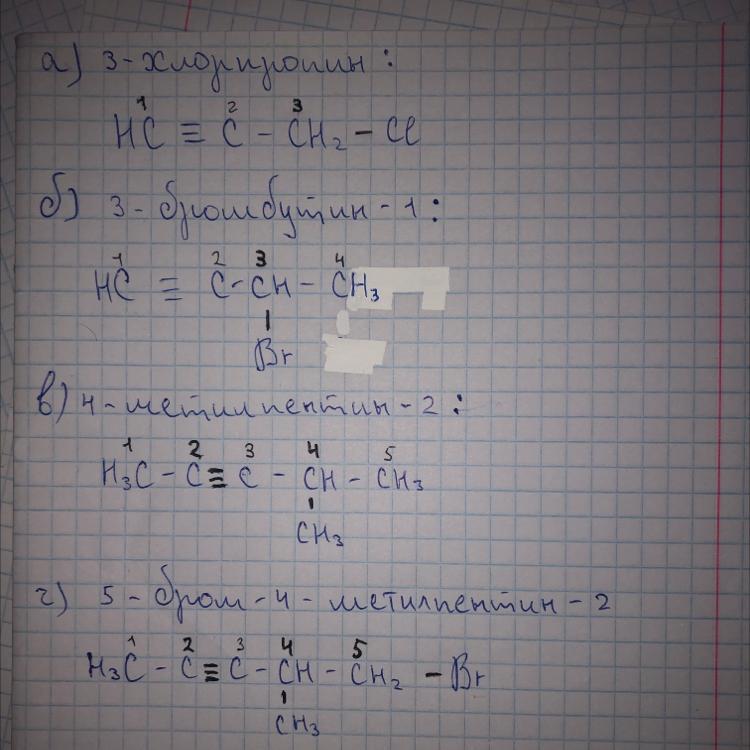 а) 3-хлорпропин:
1 2 3
HC ≡ C - CH₂ - Cl
б) 3-бромбутин-1:
1 2 3 4
HC ≡ C - CH - CH₃
|
Br
в) 4-метилпентин-2:
1 2 3 4 5
H₃C - C ≡ C - CH - CH₃
|
CH₃
г) 5-бром-4-метилпентин-2
1 2 3 4 5
H₃C - C ≡ C - CH - CH₂ - Br
|
CH₃